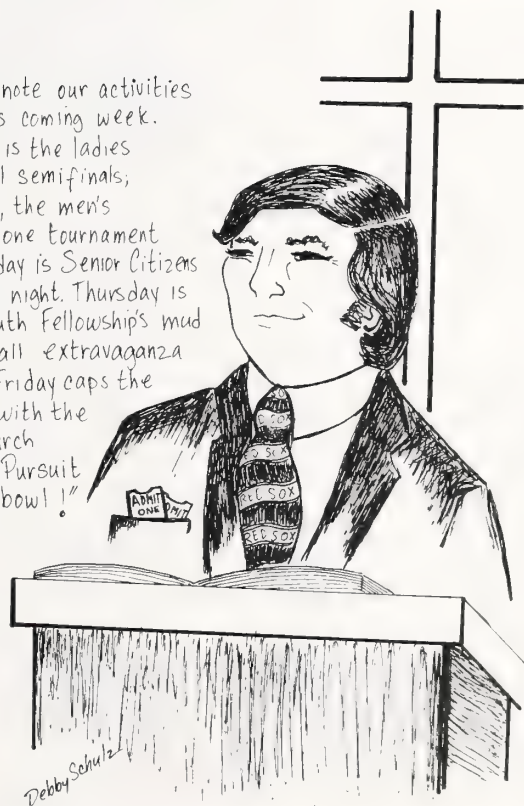 note our activities
s coming week.
is the ladies
l semifinals;
, the men's
one tournament
day is Senior Citizens
night. Thursday is
uth Fellowship's mud
all extravaganza
Friday caps the
with the
rch
Pursuit
bowl!"
ADMIT
ONE
MIT
RED SOX
D SOX
RED SOX
RED SOX
Debby Schulz